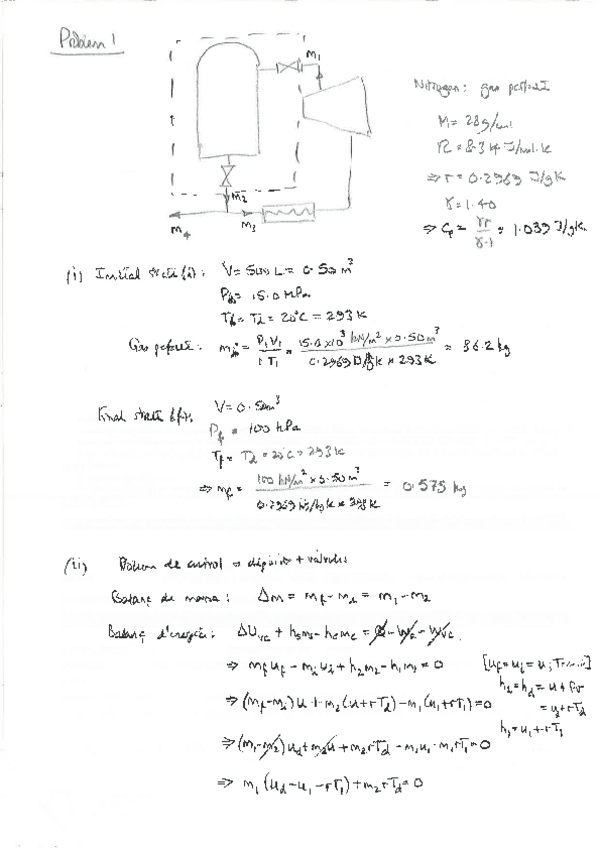 Problem 1
m1
m2
m3
m4
Nitrogen: gas perfect
M = 28 g/mol
R = 8.314 J/mol.K
⇒ r = 0.2969 J/gK
γ = 1.40
⇒ Cp = γr/γ-1 = 1.039 J/gK
(i) Initial state
V = 500 L = 0.50 m³
P = 15.0 MPa
= Td = 20°C = 293 K
Gas perfecte: = P1V1/rT1 = 15.0 x 10³ kN/m² x 0.50 m³ / x 293 K = 86.2 kg
Final state
V = 0.50 m³
Pf = 100 kPa
Tf = Td = 20°C = 293 K
⇒ mf = 100 kN/m² x 0.50 m³ / = 0.575 kg
(ii) de control = dipòsit + vàlvules
Balanç de massa: Δm = mf - md = m1 - m2
Balanç d'energia: ΔUvc + hsms - heme = Q - We - Wvc
⇒ mfuf - miui + h2m2 - h1m1 = 0
[uf = ui = u;
h2 = hd = u + Pv
= u + rTd
h1 = u1 + rT1
⇒ (mf - mi)u + m2(u + rTd) - m1(u1 + rT1) = 0
⇒ (m1 - m2)ud + m2u + m2rTd - m1u1 - m1rT1 = 0
⇒ m1(ud - u1 - rT1) + m2rTd = 0